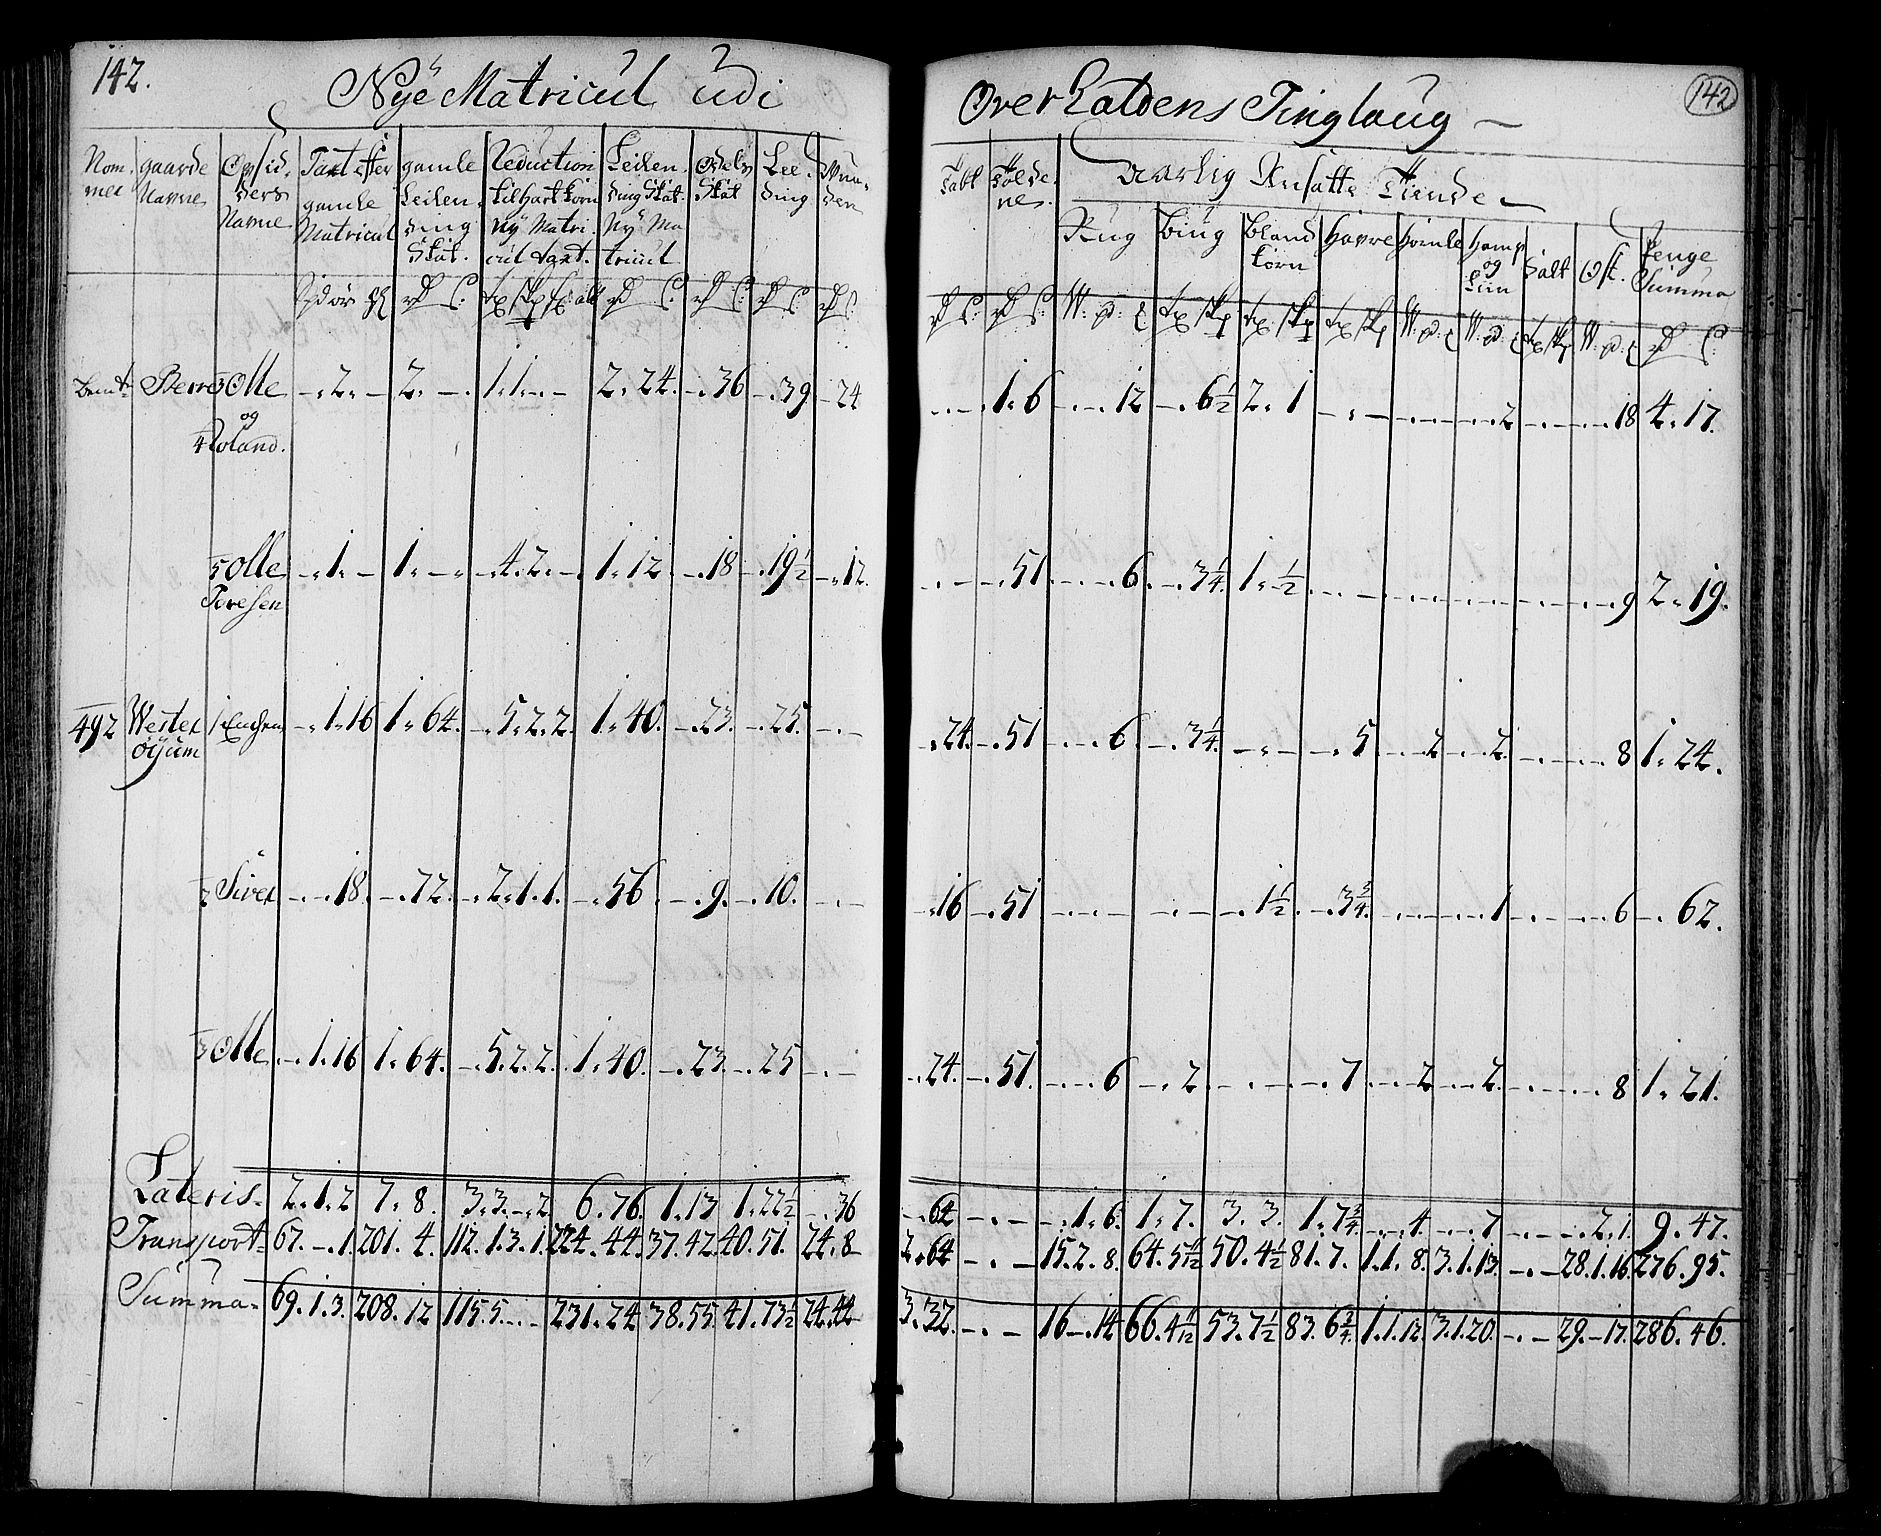 142.
Nÿe Matricul udi
Over Haldens Tinglaug
142
Nom-
mer
gaarde
Nafne
Opsid-
ders
Nafne
Taxt efter
gamle
Matricul
gamle
Leilen-
ding
Skat.
Reduction
til Hart Korn
Nÿ Matri-
cul taxt.
Leilen-
ding Skat.
Nÿ Ma-
tricul
Odels
Skat
Lee-
ding
Wun-
den
Fabt
Aarlig Ansatte Tiende
Rug
Biug
Bland
Korn
Havre
Homle
Hamp
og
Liin
Salt
Ost.
Penge
Summa
4 Olle
og
Roland.
- 2 - 2 - 1. 1. - 2. 24. - 36 - 39 - 24
- - 1. 6 - - 12 - 6½ 2. 1 - - - - 2 - - 18 4. 17.
5 Olle
Toresen
- 1. - 1. - - 4. 2. - 1. 12. - 18 - 19½ - 12.
- - 51 - - 6. - 3¼. 1. ½ - - - - - - - 9 2. 19.
492 Wester
øÿum
1
- 1. 16 1. 64. - 5. 2. 2. 1. 40. - 23. - 25. - -
- 24. - 51 - - 6. - 3¼. - - - 5 - 2 - 2. - - 8 1. 24.
2 Siver
- - 18. - 72. - 2. 1. 1. - 56 - 9. - 10. - -
- 16 - 51 - - - - - - 1½ - 3¾. - - - 1 - - 6 - 62.
3 Olle
- 1. 16 1. 64. - 5. 2. 2. 1. 40. - 23. - 25 - -
- 24. - 51. - - 6 - 2 - - - 7 - 2 - 2. - - 8 1. 21.
Lateris. 2. 1. 2 7. 8. 3. 3. - 2. 6. 76. 1. 13 1. 22½ - 36
- 64 - - - 1. 6. 1. 7. 3. 3. 1. 7¾ - - 4. - - 7 - - - 2. 1. 9. 47.
Transport 67. - 1. 201. 4. 112. 1. 3. 1. 224. 44. 37. 42. 40. 51. 24. 8
2. 64 - - 15. 2. 8. 64. 50. 4½ 81. 7. 1. 1. 8. 3. 1. 13. - - 28. 1. 16. 276. 95.
Summa 69. 1. 3. 208. 12 115. 5. - - 231. 24 38. 55. 41. 73½ 24. 44
3. 32. - - 16 - 14 66. 53. 7½ 83. 6¾. 1. 1. 12. 3. 1. 20. - - 29. - 17. 286. 46.